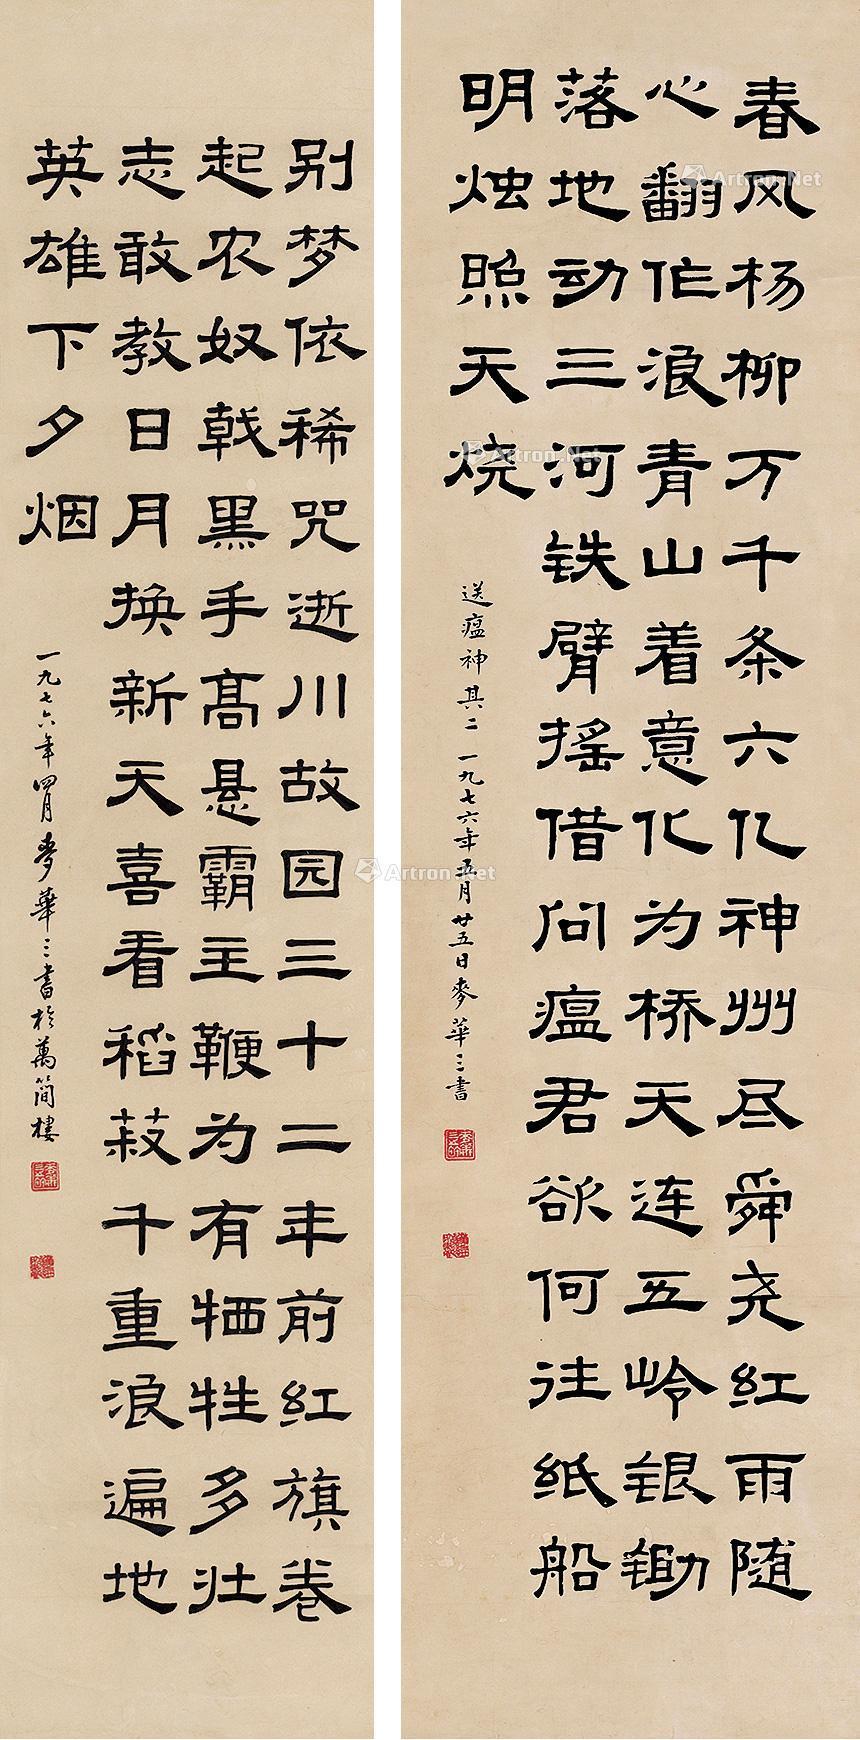 春风杨柳万千条六亿神州尽舜尧红雨随
心翻作浪青山着意化为桥天连五岭银锄
落地动三河铁臂摇借问瘟君欲何往纸船
明烛照天烧
送瘟神其二 一九七六年五月廿五日麥華三書
别梦依稀咒逝川故园三十二年前红旗卷
起农奴戟黑手高悬霸主鞭为有牺牲多壮
志敢教日月换新天喜看稻菽千重浪遍地
英雄下夕烟
一九七六年四月麥華三書於萬簡樓
Artron.Net
Artron.Net
Artron.Net